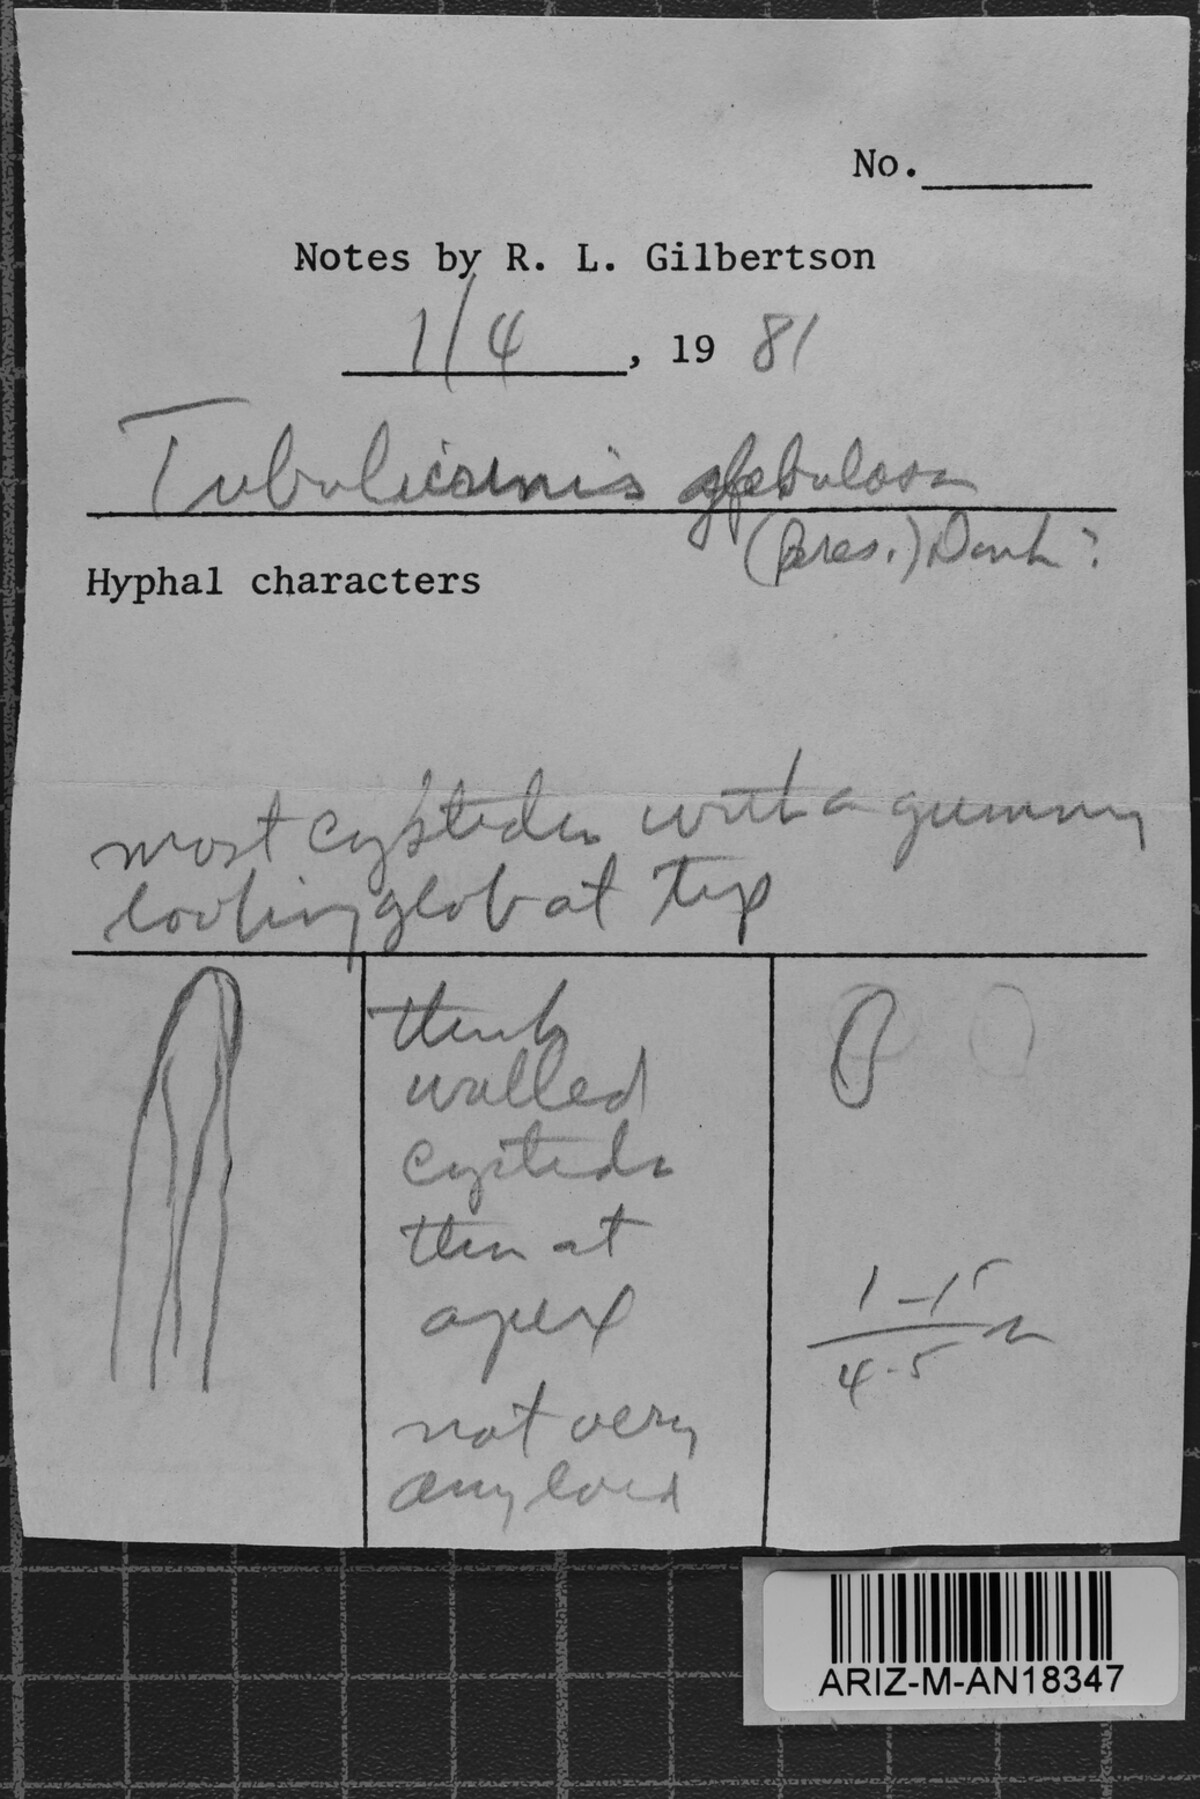 No.
Notes by R. L. Gilbertson
1/4, 19 81
Tubulicrinis
(Bres.) Donk ?
Hyphal characters
most cystidia with a gummy
looking glob at tip
thick
walled
cystidia
thin at
apex
not very
amyloid
1-1.5
4-5 μ
ARIZ-M-AN18347